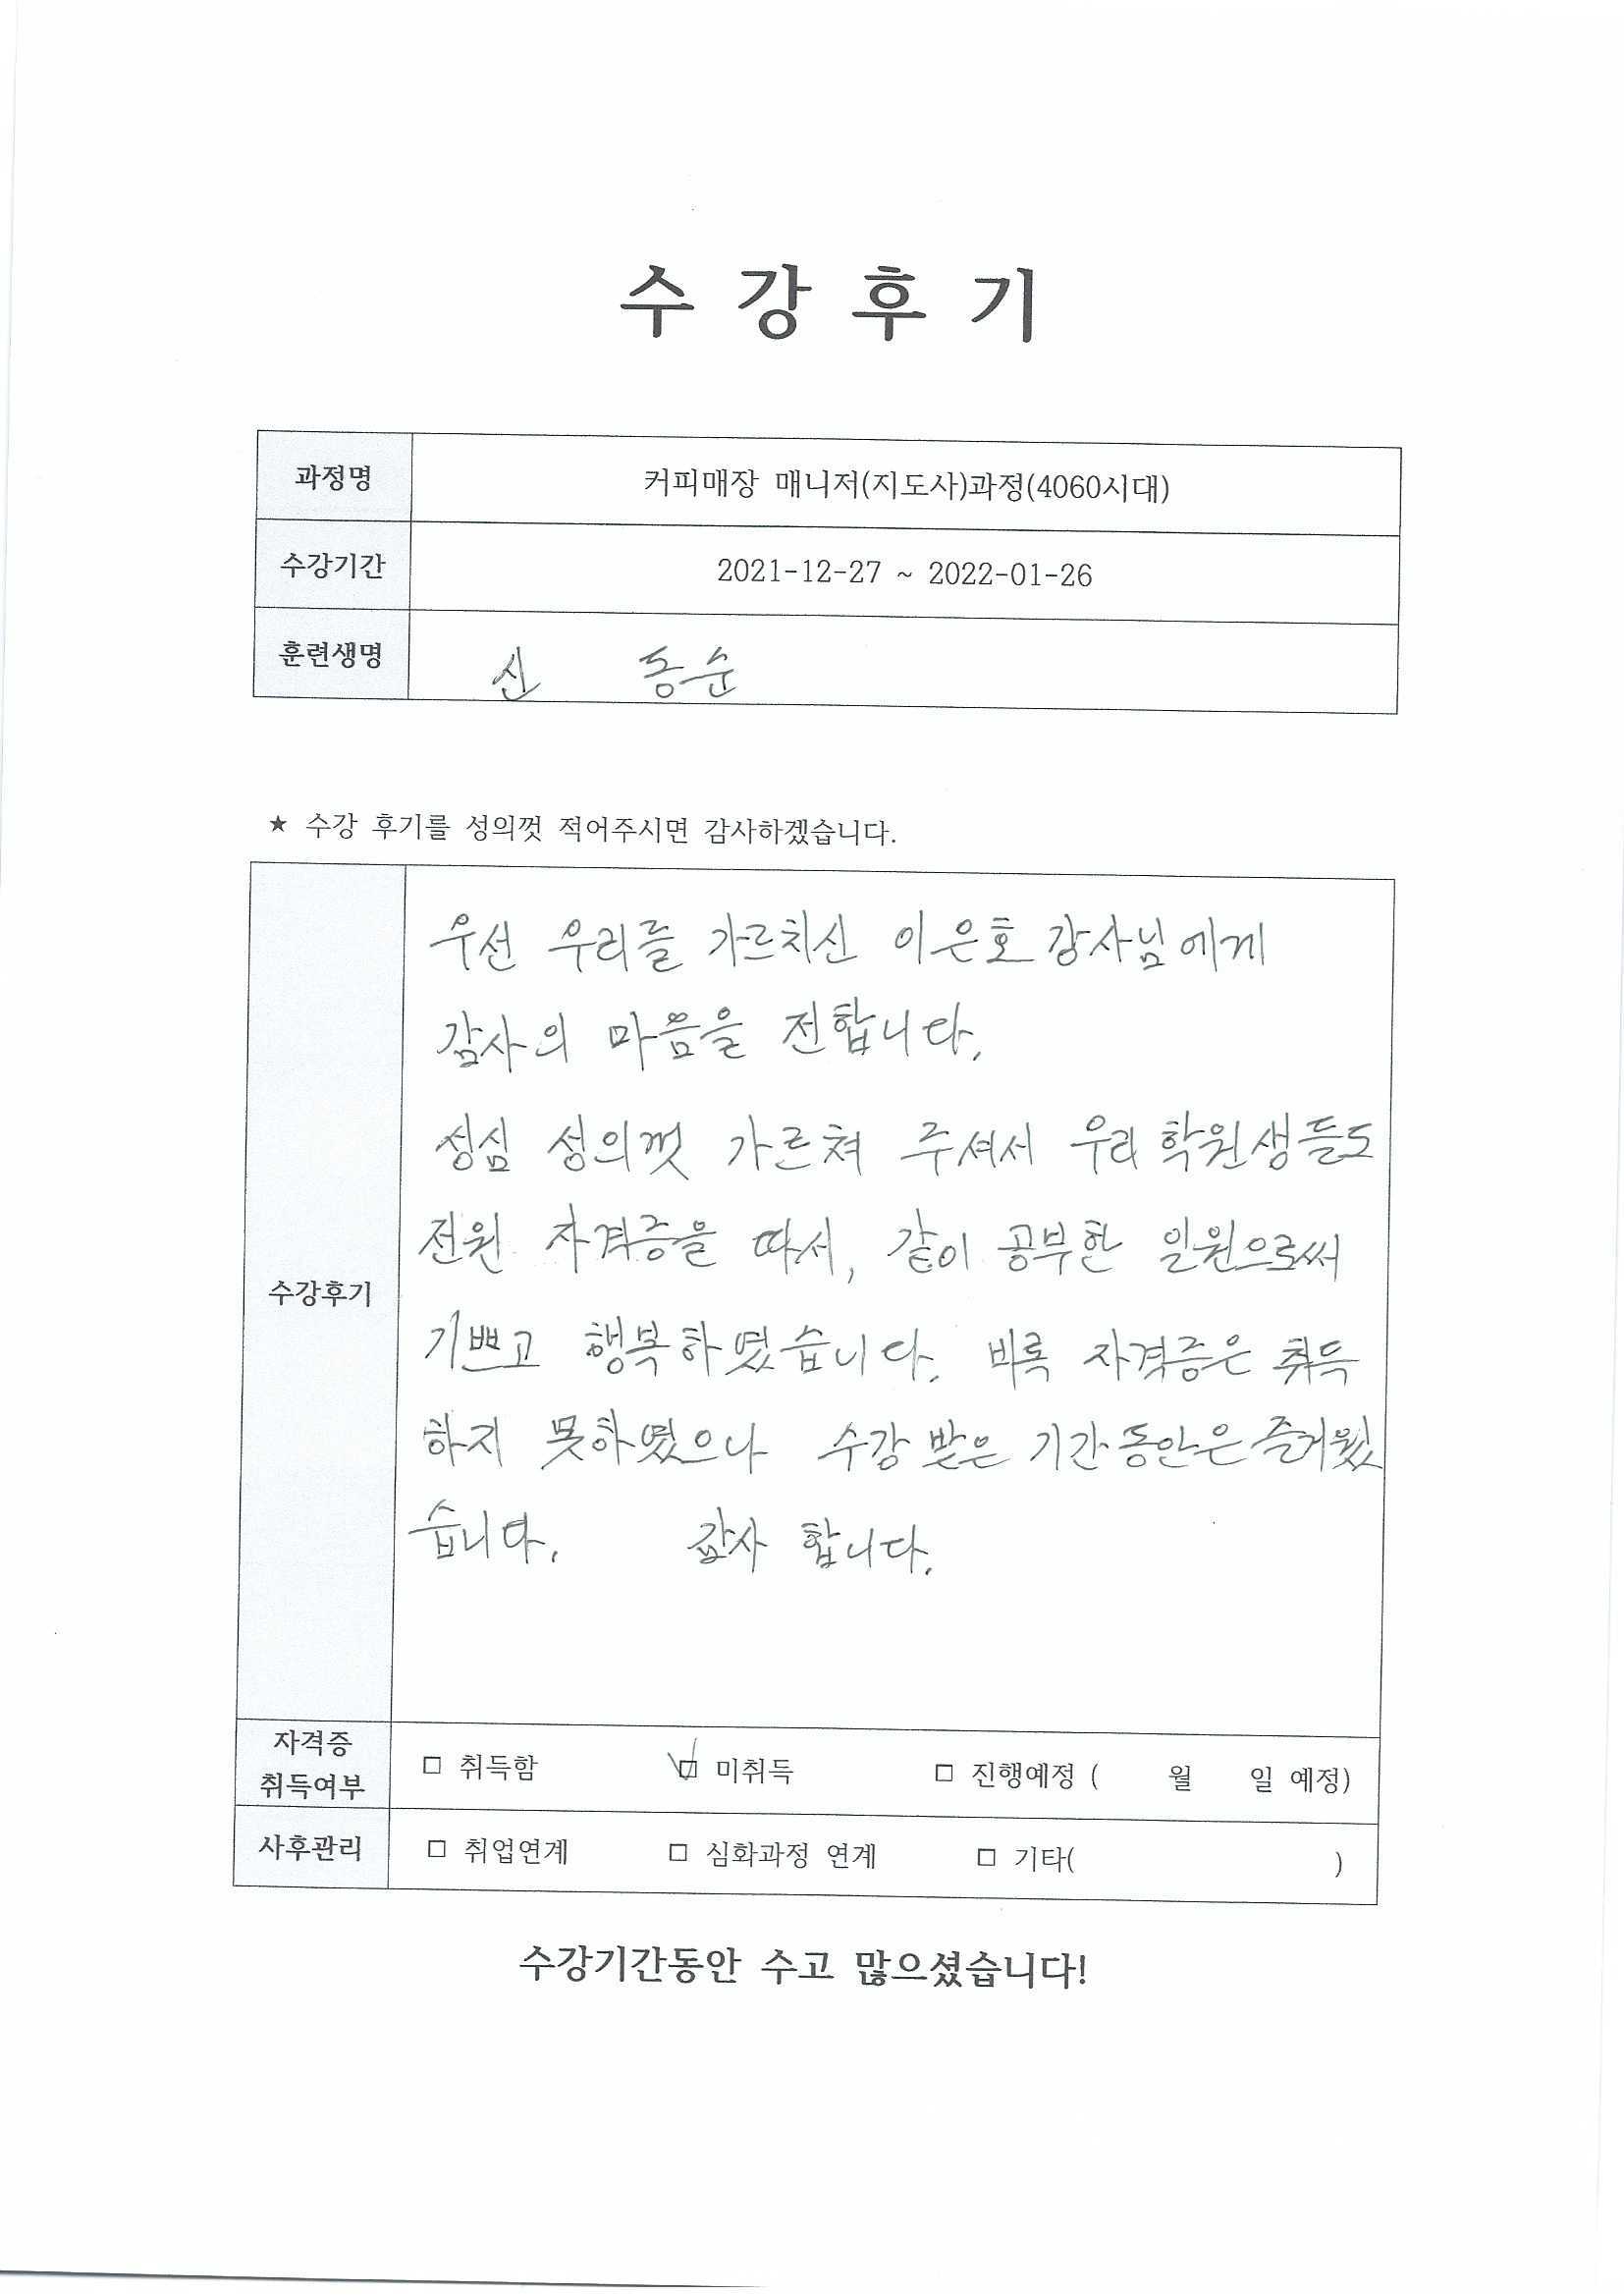 수 강 후 기
과정명 커피매장 매니저(지도사)과정(4060시대)
수강기간 2021-12-27 ~ 2022-01-26
훈련생명 신 동순
★ 수강 후기를 성의껏 적어주시면 감사하겠습니다.
우선 우리들 가르치신 이은호 강사님에게
감사의 마음을 전합니다.
성심 성의껏 가르쳐 주셔서 우리 학원생들도
전원 자격증을 따서, 같이 공부한 일원으로써
수강후기
기쁘고 행복하였습니다. 비록 자격증은 취득
하지 못하였으나 수강 받은 기간동안은 즐거웠
습니다. 감사 합니다.
자격증
취득여부
□ 취득함 □ 미취득 □ 진행예정 ( 월 일 예정)
사후관리 □ 취업연계 □ 심화과정 연계 □ 기타( )
수강기간동안 수고 많으셨습니다!